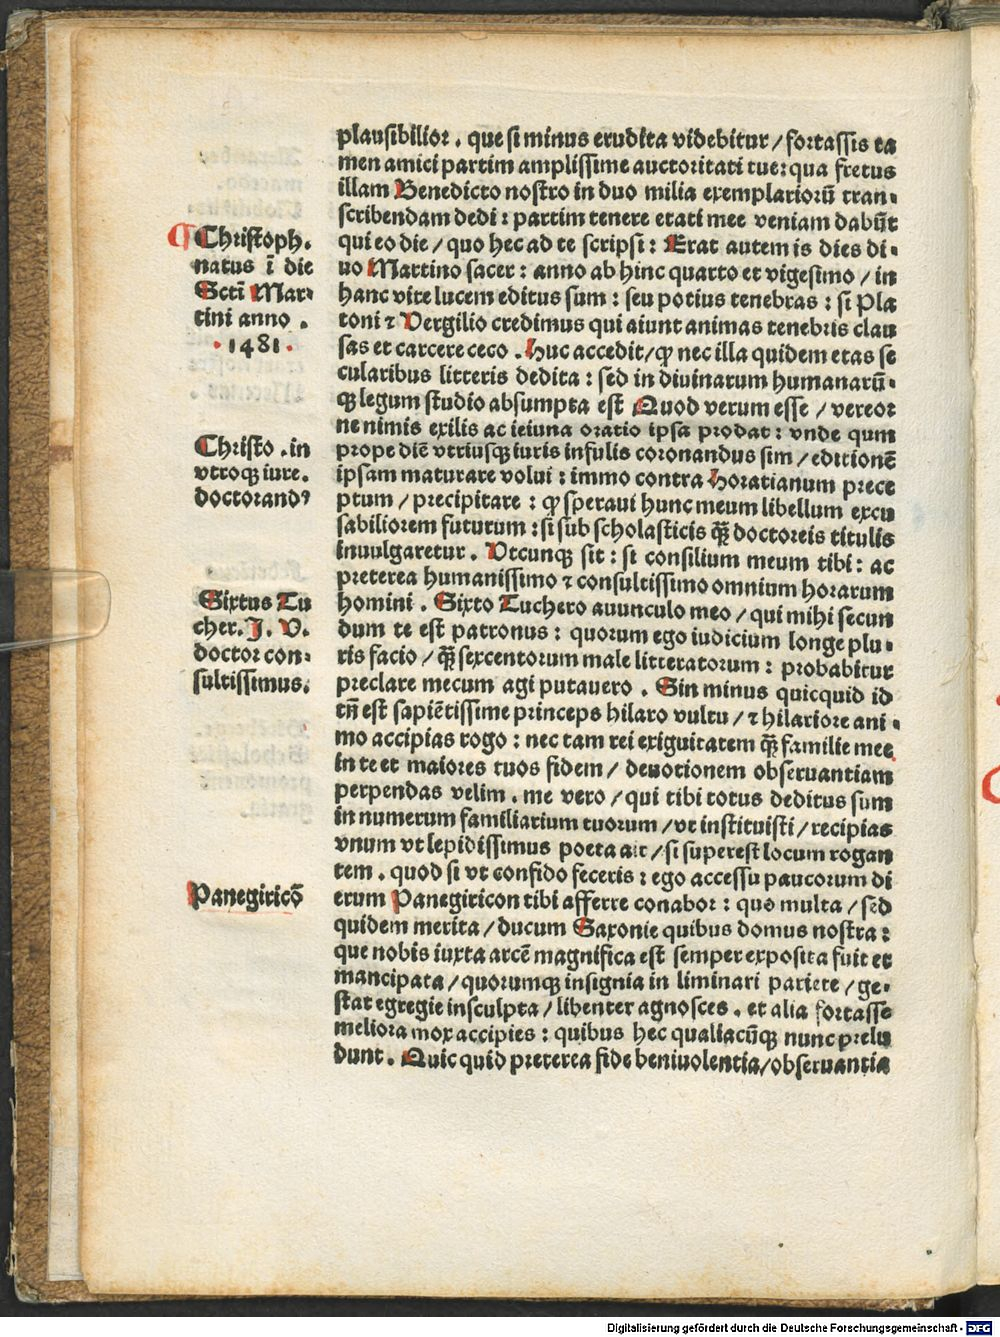 plausibilior . que si minus erudita videbitur / fortassis ta
men amici partim amplissime auctoritati tue: qua fretus
illam Benedicto nostro in duo milia exemplariorū tran⸗
scribendam dedi : partim tenere etati mee veniam dabūt
qui eo die / quo hec ad te scripsi : Erat autem is dies di⸗
uo Martino sacer : anno ab hinc quarto et vigesimo / in
hanc vite lucem editus sum : seu potius tenebras : si Pla
toni ⁊ Vergilio credimus qui aiunt animas tenebris clau
sas et carcere ceco . Huc accedit / ꝙ nec illa quidem etas se
cularibus litteris dedita : sed in diuinarum humanarū⸗
qꝫ legum studio absumpta est Quod verum esse / vereor
ne nimis exilis ac ieiuna oratio ipsa probat : vnde qum
prope diē vtriusqꝫ iuris infulis coronandus sim / editionē
ipsam maturare volui : immo contra Horatianum prece
ptum / precipitare : ꝙ speraui hunc meum libellum excu
sabiliorem futurum : si sub scholasticis qꝫ̄ doctoreis titulis
inuulgaretur . Vtcunqꝫ sit : si consilium meum tibi : ac
preterea humanissimo ⁊ consultissimo omnium horarum
homini . Sixto Tuchero auunculo meo / qui mihi secun
dum te est patronus : quorum ego iudicium longe plu⸗
ris facio / qꝫ̄ sexcentorum male litteratorum : probabitur
preclare mecum agi putauero . Sin minus quicquid id
tn̄ est sapiētissime princeps hilaro vultu / ⁊ hilariore ani⸗
mo accipias rogo : nec tam rei exiguitatem qꝫ̄ familie mee
in te et maiores tuos fidem / deuotionem obseruantiam
perpendas velim . me vero / qui tibi totus deditus sum
in numerum familiarium tuorum / vt instituisti / recipias
vnum vt lepidissimus poeta ait / si superest locum rogan
tem . quod si vt confido feceris : ego accessu paucorum di
erum Panegiricon tibi afferre conabor : quo multa / sed
quidem merita / ducum Saxonie quibus domus nostra :
que nobis iuxta arcē magnifica est semper exposita fuit et
mancipata / quorumqꝫ insignia in liminari pariete / ge⸗
stat egregie insculpta / libenter agnosces . et alia fortasse
meliora mox accipies : quibus hec qualiacūqꝫ nunc prelu
dunt . Quic quid preterea fide beniuolentia / obseruantia
¶ Christoph.
natus ī die
Scti Mar⸗
tini anno .
· 1481 ·
Christo . in
vtroqꝫ iure.
doctorandꝰ
Sixtus Tu
cher. J. V.
doctor con⸗
sultissimus.
Panegiricō
Digitalisierung gefördert durch die Deutsche Forschungsgemeinschaft - DFG